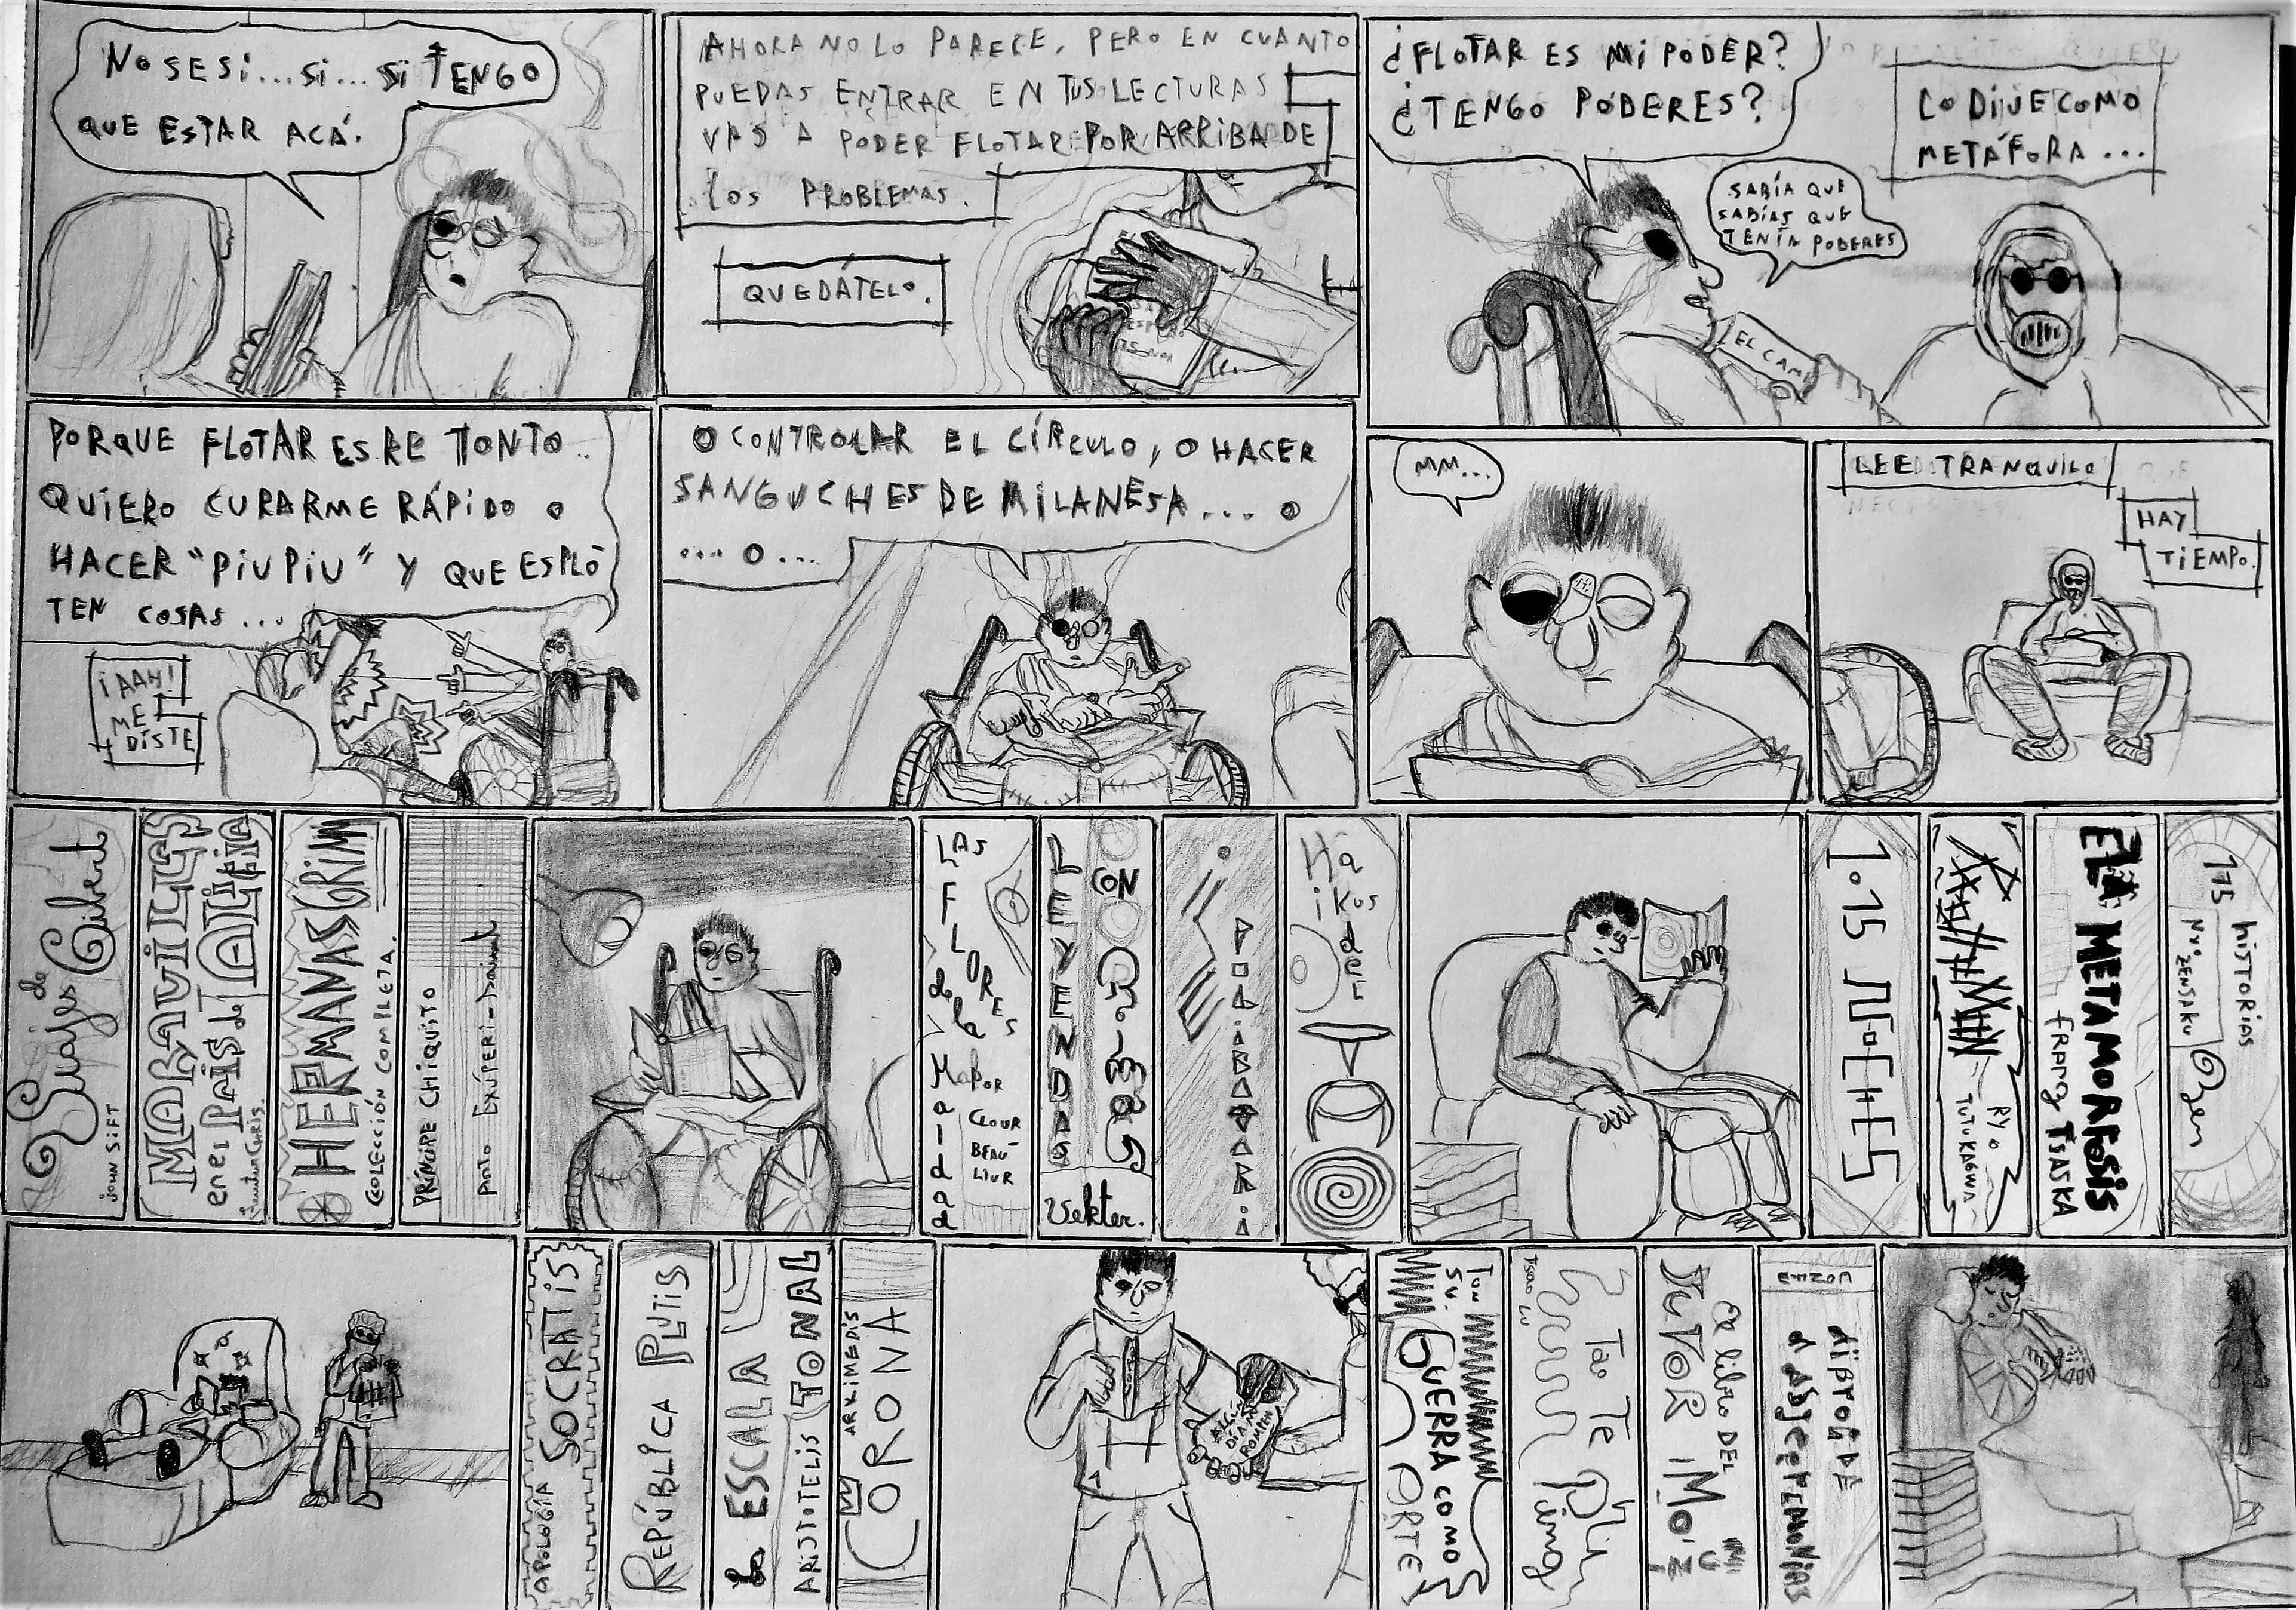 NO SE SI... SI... SI TENGO
QUE ESTAR ACÁ.
AHORA NO LO PARECE, PERO EN CUANTO
PUEDAS ENTRAR EN TUS LECTURAS
VAS A PODER FLOTAR POR ARRIBA DE
LOS PROBLEMAS.
QUEDÁTELO.
¿FLOTAR ES MI PODER?
¿TENGO PODERES?
LO DIJE COMO
METÁFORA...
SABÍA QUE
SABÍAS QUE
TENÍA PODERES
EL CAMI
PORQUE FLOTAR ES RE TONTO..
QUIERO CURARME RÁPIDO O
HACER "PIU PIU" Y QUE ESPLO
TEN COSAS...
¡AAH!
ME
DISTE
O CONTROLAR EL CÍRCULO, O HACER
SANGUCHES DE MILANESA... O
... O ...
MM...
LEE TRANQUILO
HAY
TIEMPO.
Los Viajes de Gilbert
JOHN SIFT
MARAVILLAS
en el País de ALICIA
HERMANAS GRIM
COLECCIÓN COMPLETA.
PRÍNCIPE CHIQUITO
LAS
FLORES
de la
Maldad
POR
CLOUR
BEAU-
LIUR
LEYENDAS
CON
Vekter.
Haikus del
1.15 NOCHES
RYO
TUTUKAGWA
ELA METAMORFOSIS
franq TSASKA
175 historias
Zen
Nyo ZENSAKU
APOLOGÍA SOCRATIS
REPÚBLICA PLUTIS
La ESCALA TONAL
ARISTOTELIS
ARKIMEDIS
CORONA
ALGUN
DÍA ME
ROMPEN
Tun
SU.
GUERRA COMO
ORTE
Tsao Lu
Tao Te
Ping
DEL